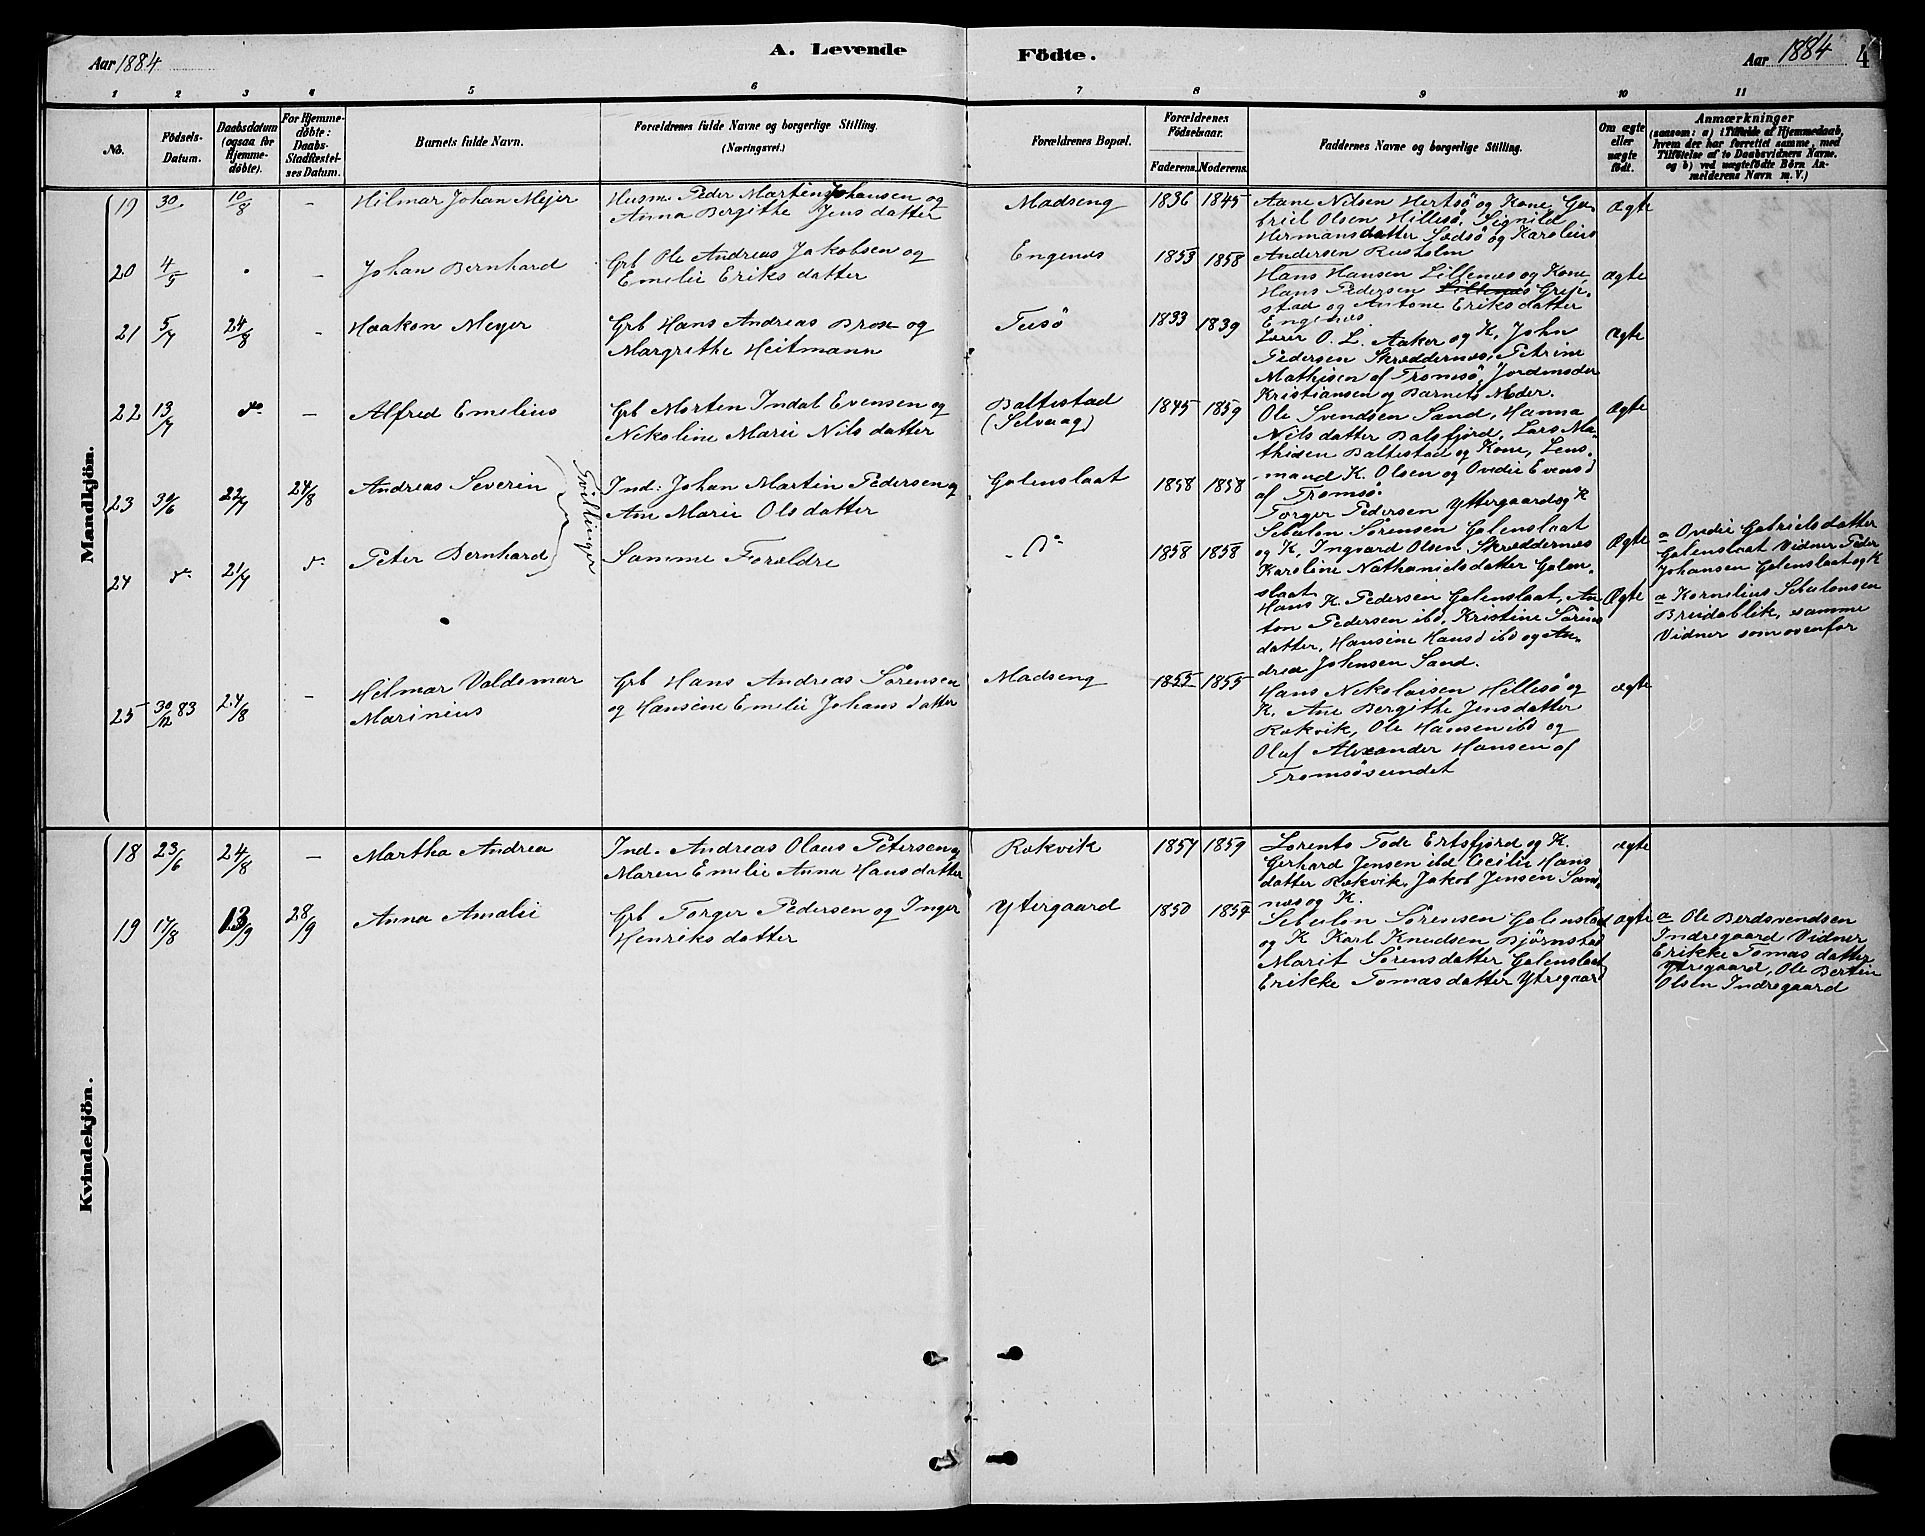 Aar 1884
A. Levende
Födte.
Aar 1884
4
1 2 3 4 5 6 7 8 9 10 11
No.
Födsels-Datum.
Daabsdatum (ogsaa for Hjemme-döbte).
For Hjemme-döbte: Daabs-Stadfæstel-ses Datum.
Barnets fulde Navn.
Forældrenes fulde Navne og borgerlige Stilling.
(Næringsvei.)
Forældrenes Bopæl.
Forældrenes Födselsaar.
Faderens. Moderens.
Faddernes Navne og borgerlige Stilling.
Om ægte eller uægte födt.
Anmærkninger
(saasom: a) i Tilfælde af Hjemmedaab,
hvem der har forrettet samme, med
Tilföielse af to Daabsvidners Navne.
og b) ved uægtefödte Börn An-
melderens Navn m. V.)
Mandkjön.
19 30 10/8 - Hilmar Johan Mejer
Husm. Peder Martin Johansen og
Anna Bergithe Jensdatter
Madseng 1836 1845
Aane Nilsen Hertsö og Kone, Ga-
briel Olsen Hillesö, Signild
Hermansdatter Sedsö og Karolius
Andersen Rusholm
Ægte
20 4/5 - Johan Bernhard
Grb Ole Andreas Jakobsen og
Emelie Eriksdatter
Engenes 1853 1858
Hans Hansen Lillenes og Kone,
Hans Pedersen Lillenes Grep-
stad og Antone Eriksdatter
Engenes.
Ægte
21 5/7 24/8 - Haakon Meyer
Grb Hans Andreas Brox og
Margrethe Heitmann
Tusö 1833 1839
Lærer O. L. Aaker og K, John
Pedersen Skræddernes, Petrine
Mathisen af Tromsö, Jordemoder
Kristiansen og Barnets Moder.
Ægte
22 13/7 do - Alfred Emelius
Grb Morten Indal Evensen og
Nikoline Marie Nilsdatter
Baltestad
(Selvaag)
1845 1859
Ole Svendsen Sand, Hanna
Nilsdatter Balsfjord, Lars Ma-
thisen Baltestad og Kone, Lens-
mand K. Olsen og Ovedie Evensd
af Tromsö.
Ægte
23 30/6 22/7 24/8 Andreas Severin
Tvillinger
Ind: Johan Martin Pedersen og
Ane Marie Olsdatter
Galenslaat 1858 1858
Torger Pedersen Yttergaard og K
Sebulon Sörensen Galenslaat
og K, Ingvard Olsen Skræddernes
Karoline Nathanielsdatter Galen-
slaat
Ægte
a Ovedie Gabrielsdatter
Galenslaat Vidner Peder
Johansen Galenslaat og K
24 do 21/7 do Peter Bernhard
Samme Forældre
- Do 1858 1858
Hans K. Pedersen Galenslaat, An-
ton Pedersen ibd, Kristine Sörens
datter, Hansine Hansd ibd og An-
drea Johnsen Sand.
Ægte
a Kornelius Sebulonsen
Breidablik, samme
Vidner som ovenfor
25 30/12 83 24/8 - Hilmar Valdemar
Marinius
Grb Hans Andreas Sörensen
og Hansine Emelie Johansdatter
Madseng 1855 1855
Hans Nikolaisen Hillesö og
K. Ane Bergithe Jensdatter
Rokvik, Ole Hansen ibd og
Oluf Alexander Hansen af
Tromsösundet
ægte
Kvindekjön.
18 23/6 24/8 - Martha Andrea
Ind. Andreas Olaus Petersen og
Maren Emelie Anna Hansdatter
Rokvik 1857 1859
Lorents Tode Ertsfjord og K.
Gerhard Jensen ibd Cecilie Hans
datter Rokvik, Jakob Jensen Sand-
nes og K.
ægte
19 17/8 13/9 28/9 Anna Amalie
Grb Torger Pedersen og Inger
Henriksdatter
Ytergaard 1850 1854
Sebulon Sörensen Galenslaat
og K Karl Knudsen Bjørnstad
Marit Sörensdatter Galenslaat
Erikke Tomasdatter Ytregaard
ægte
a Ole Berdsvendsen
Indregaard Vidner
Erikke Tomasdatter
Ytregaard, Ole Bertin
Olsen Indregaard